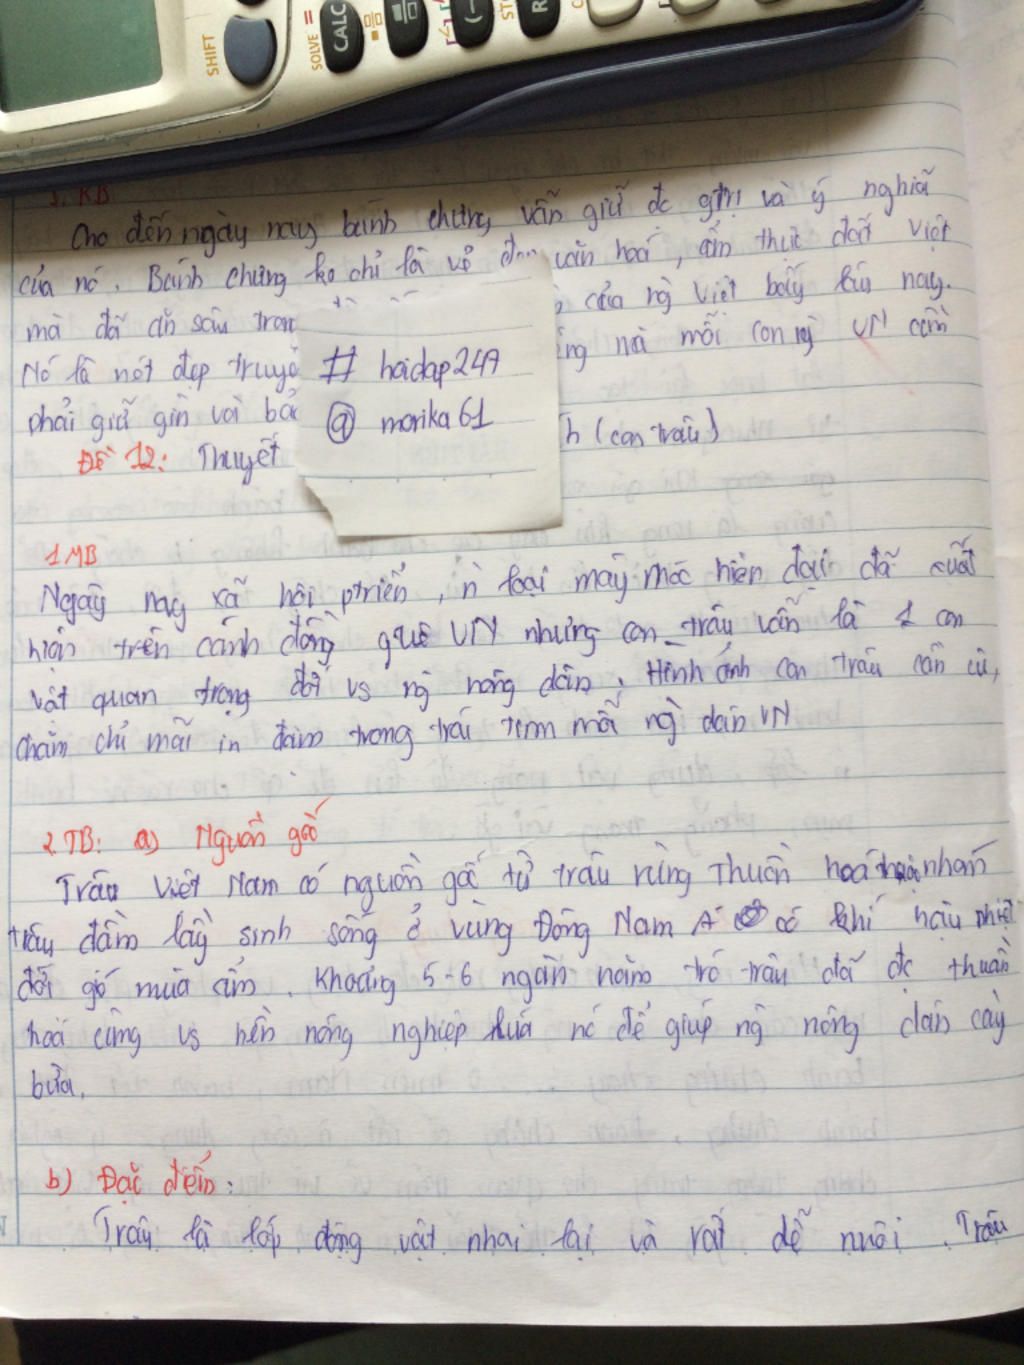 SHIFT
SOLVE =
CALC
3. KB
Cho đến ngày nay bánh chưng vẫn giữ đc gtrị và ý nghĩa
của nó. Bánh chưng ko chỉ là vẻ văn hoá, ẩm thực đất Việt
mà đã ăn sâu tron của ng Việt bấy lâu nay.
Nó là nét đẹp truyề mà mỗi con ng VN cần
phải giữ gìn và bả
# hoidap247
@ monika61
Đề 12: Thuyết h (con trâu)
1 MB
Ngày nay xã hội ptriển, n loại máy móc hiện đại đã xuất
hiện trên cánh đồng quê VN nhưng con trâu vẫn là 1 con
vật quan trọng đối vs ng nông dân. Hình ảnh con trâu cần cù,
chăm chỉ mãi in đậm trong trái tim mỗi ng dân VN
2. TB: a) Nguồn gốc
Trâu Việt Nam có nguồn gốc từ trâu rừng thuần hoá nhóm
trâu đầm lầy sinh sống ở vùng Đông Nam Á có khí hậu nhiệt
đới gió mùa ẩm. Khoảng 5-6 ngàn năm trc trâu đã đc thuần
hoá cùng vs nền nông nghiệp lúa nc để giúp ng nông dân cày
bừa.
b) Đặc điểm:
Trâu là lớp động vật nhai lại và rất dễ nuôi. Trâu